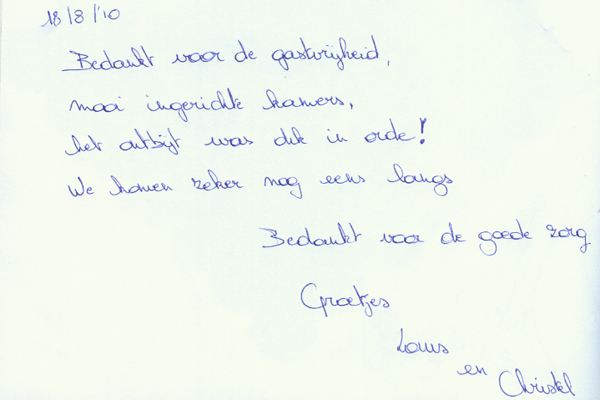 18/8/'10
Bedankt voor de gastvrijheid,
mooi ingerichte kamers,
het ontbijt was dik in orde!
We komen zeker nog eens langs
Bedankt voor de goede zorg
Groetjes
Louis
en
Christel